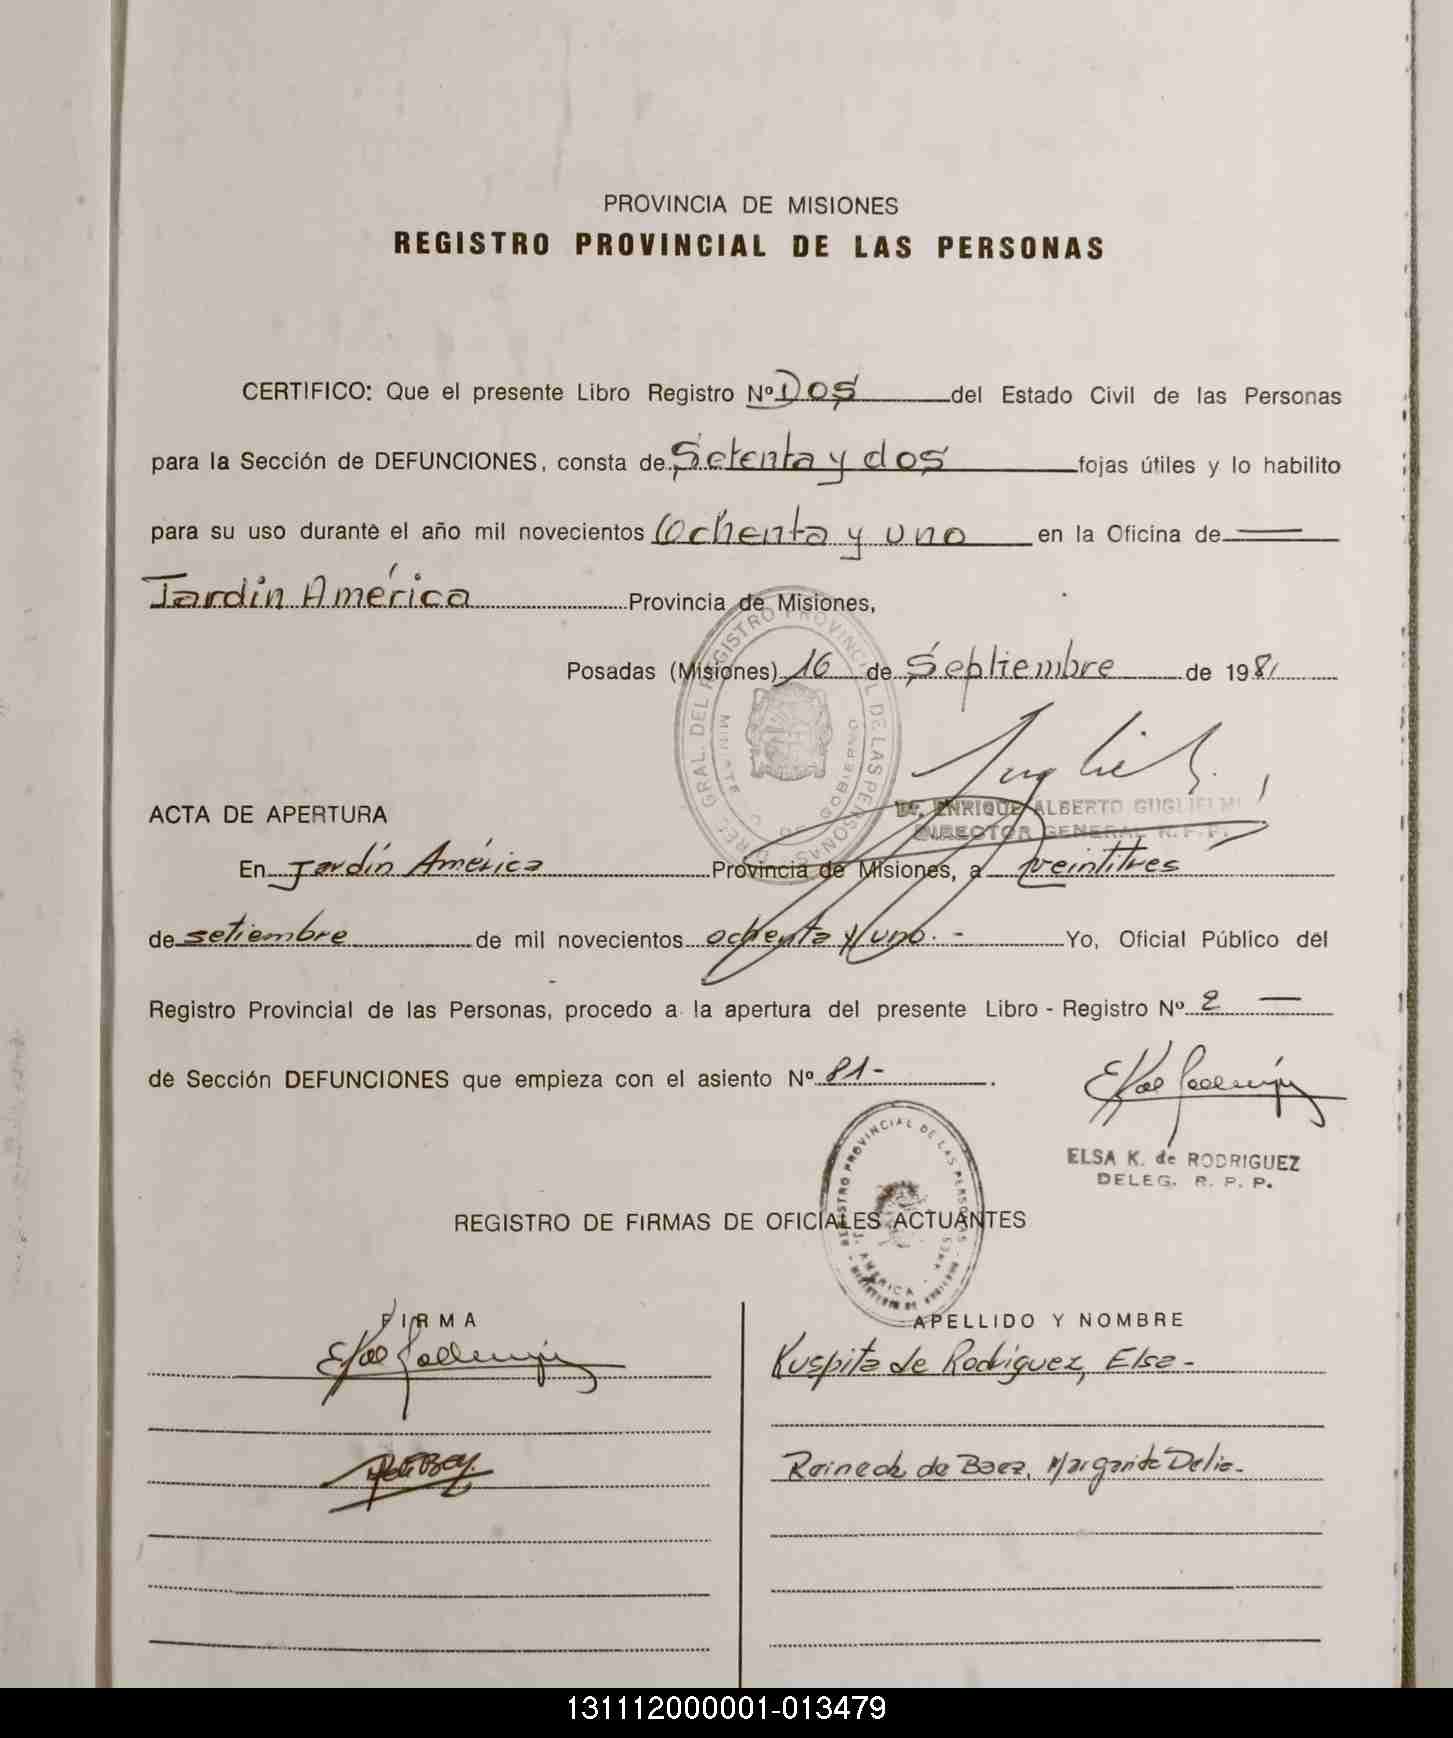 PROVINCIA DE MISIONES
REGISTRO PROVINCIAL DE LAS PERSONAS
CERTIFICO: Que el presente Libro Registro Nº Dos del Estado Civil de las Personas
para la Sección de DEFUNCIONES, consta de Setenta y dos fojas útiles y lo habilito
para su uso durante el año mil novecientos Ochenta y uno en la Oficina de
Jardín América Provincia de Misiones,
Posadas (Misiones) 16 de Septiembre de 1981
Dr. ENRIQUE ALBERTO GUGLIELMI
DIRECTOR GENERAL R.P.P.
ACTA DE APERTURA
En Jardín América Provincia de Misiones, a veintitres
de setiembre de mil novecientos ochenta y uno.- Yo, Oficial Público del
Registro Provincial de las Personas, procedo a la apertura del presente Libro - Registro Nº 2
de Sección DEFUNCIONES que empieza con el asiento Nº 81-.
ELSA K. de RODRIGUEZ
DELEG. R. P. P.
REGISTRO DE FIRMAS DE OFICIALES ACTUANTES
FIRMA APELLIDO Y NOMBRE
Kuspita de Rodríguez, Elsa-
de Baez, Margarita Delia-
131112000001-013479